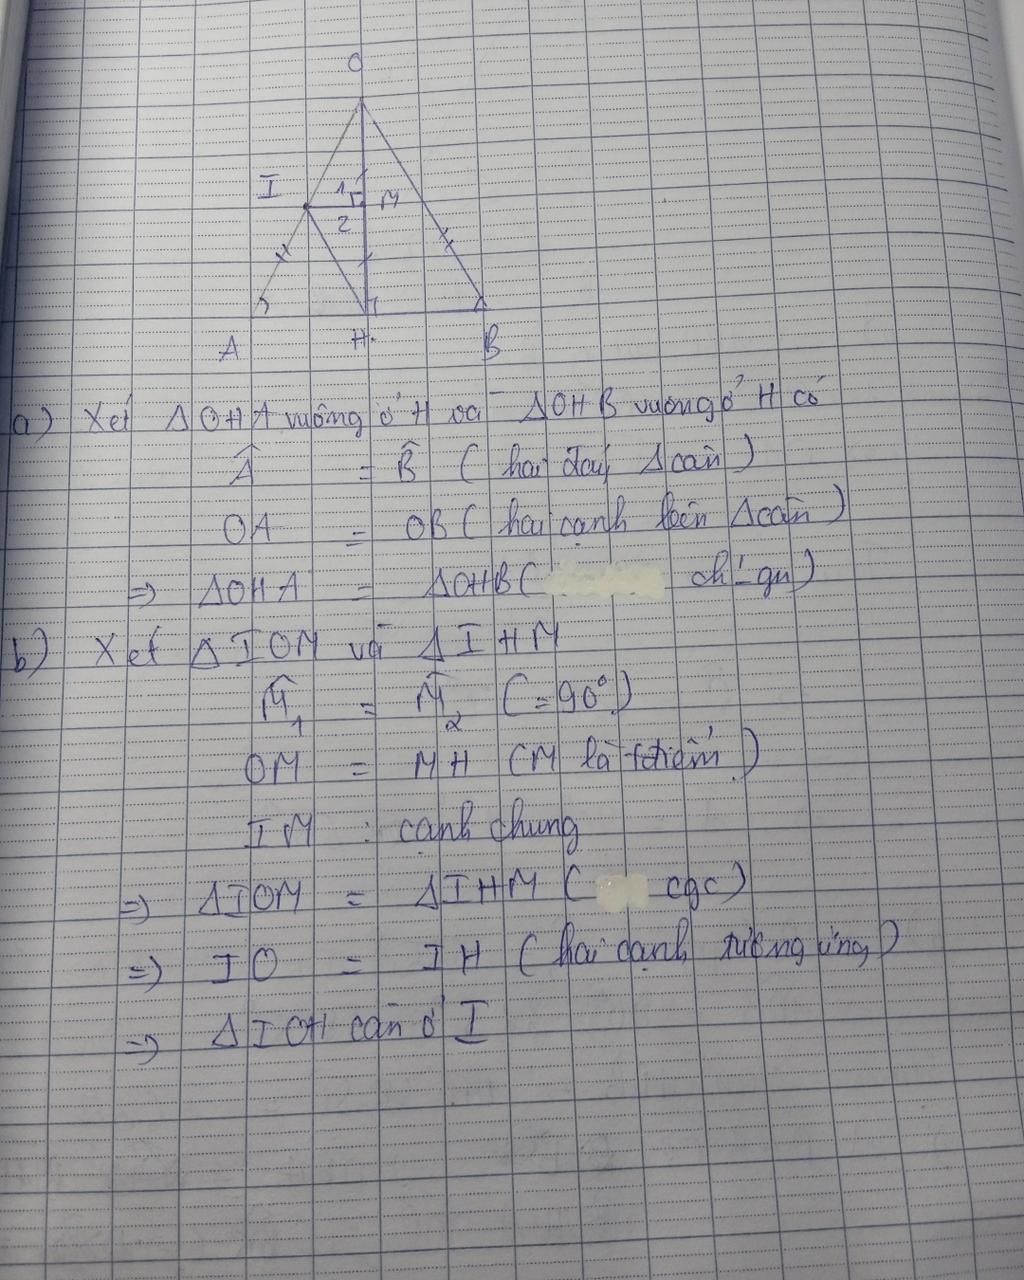 O
I 1 M
2
A H B
a) Xét ΔOHA vuông ở H và ΔOHB vuông ở H có
Â = B̂ (hai đáy Δcân)
OA = OB (hai cạnh bên Δcân)
=> ΔOHA = ΔOHB ( ch-gn)
b) Xét ΔIOM và ΔIHM
M̂1 = M̂2 (=90°)
OM = MH (M là tđiểm)
IM : cạnh chung
=> ΔIOM = ΔIHM ( cgc)
=> IO = IH (hai cạnh tương ứng)
=> ΔIOH cân ở I